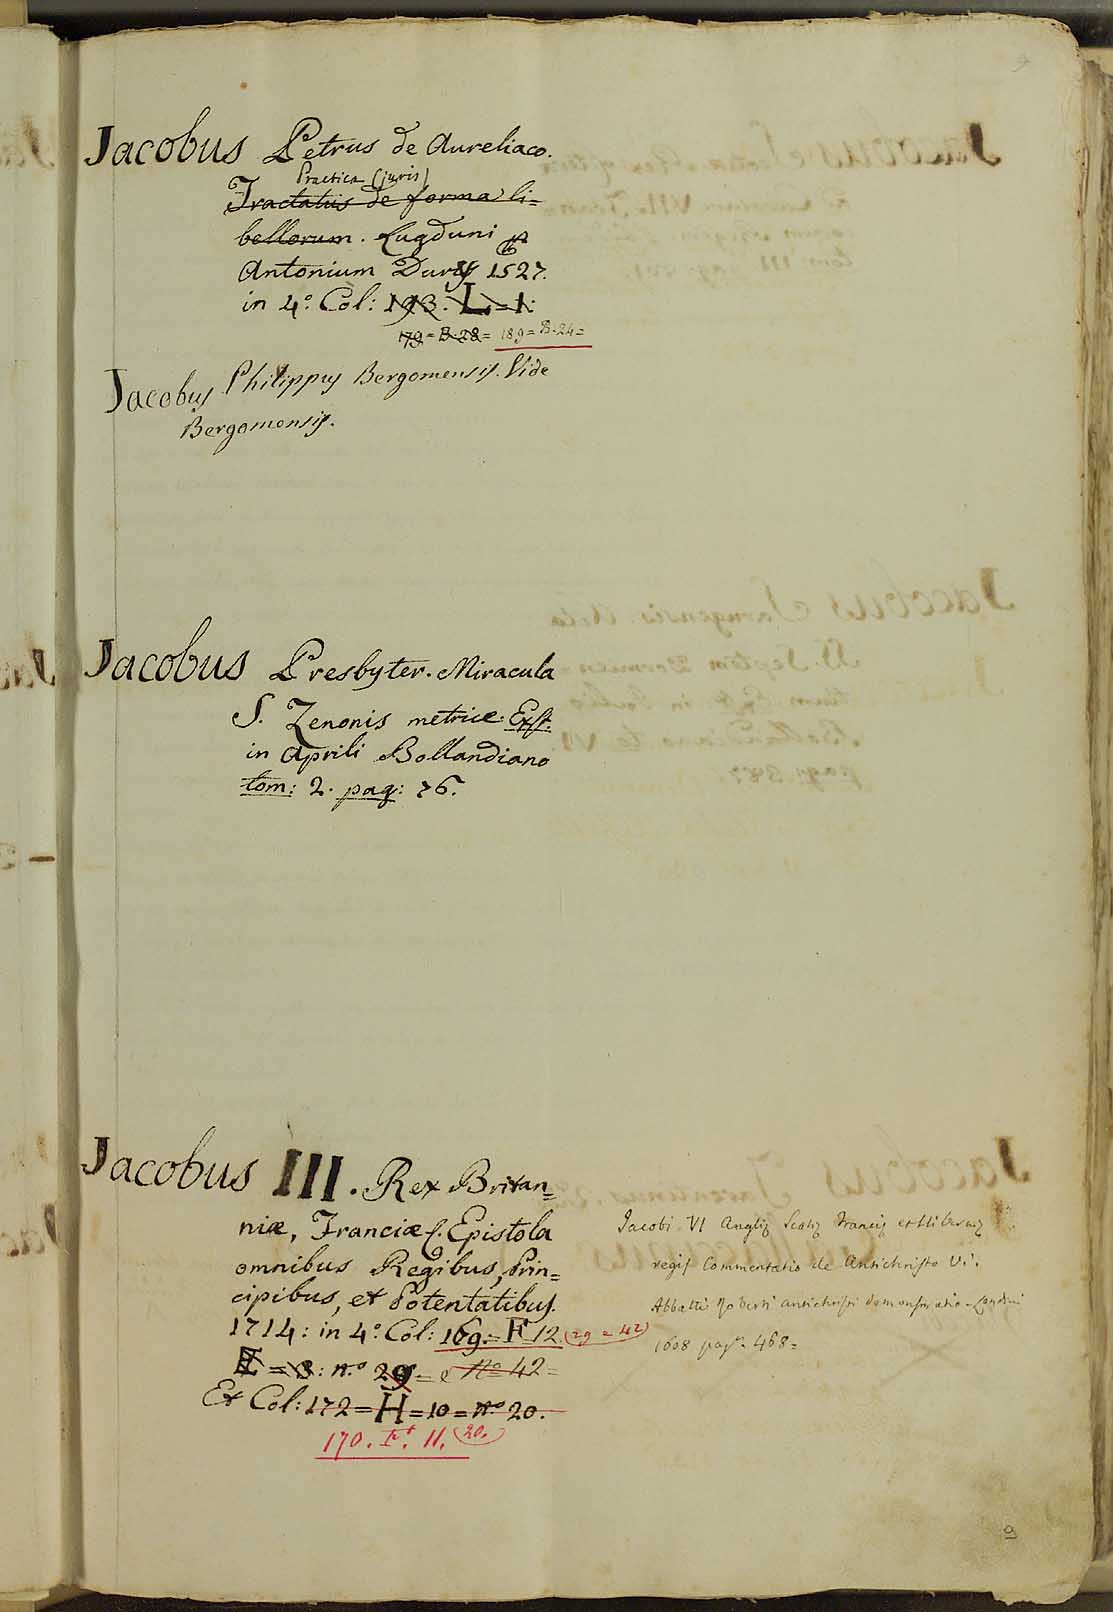 Jacobus Petrus de Aureliaco.
Practica (juris)
Tractatus de forma li=
bellorum. Lugduni
Antonium Dury 1527.
in 4.º Col: 193. L=1.
179=B.28= 189=B.24=
Jacobus Philippus Bergomensis. Vide
Bergomensis.
Jacobus Presbyter. Miracula
S. Zenonis metrice. Exst.
in Aprili Bollandiano
tom: 2. pag: 76.
Jacobus III. Rex Britan=
niæ, Franciæ &. Epistola
omnibus Regibus, Prin=
cipibus, et Potentatibus.
1714: in 4.º Col: 169.=F 12. (29=42)
E=3: n.º 29=e nº 42=
Et Col: 172=H=10=nº 20.
170. F. 11. 20.
Jacobi VI Angliæ Scotiæ Franciæ et Hiberniæ
regis Commentatio de Antichristo Vi.
Abbatti Roberti antichristi demonstratio. Londini
1608 pag. 468=
9